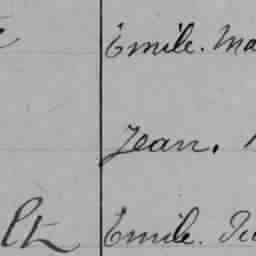 Emile. Ma
Jean.
lt Emile. Ju